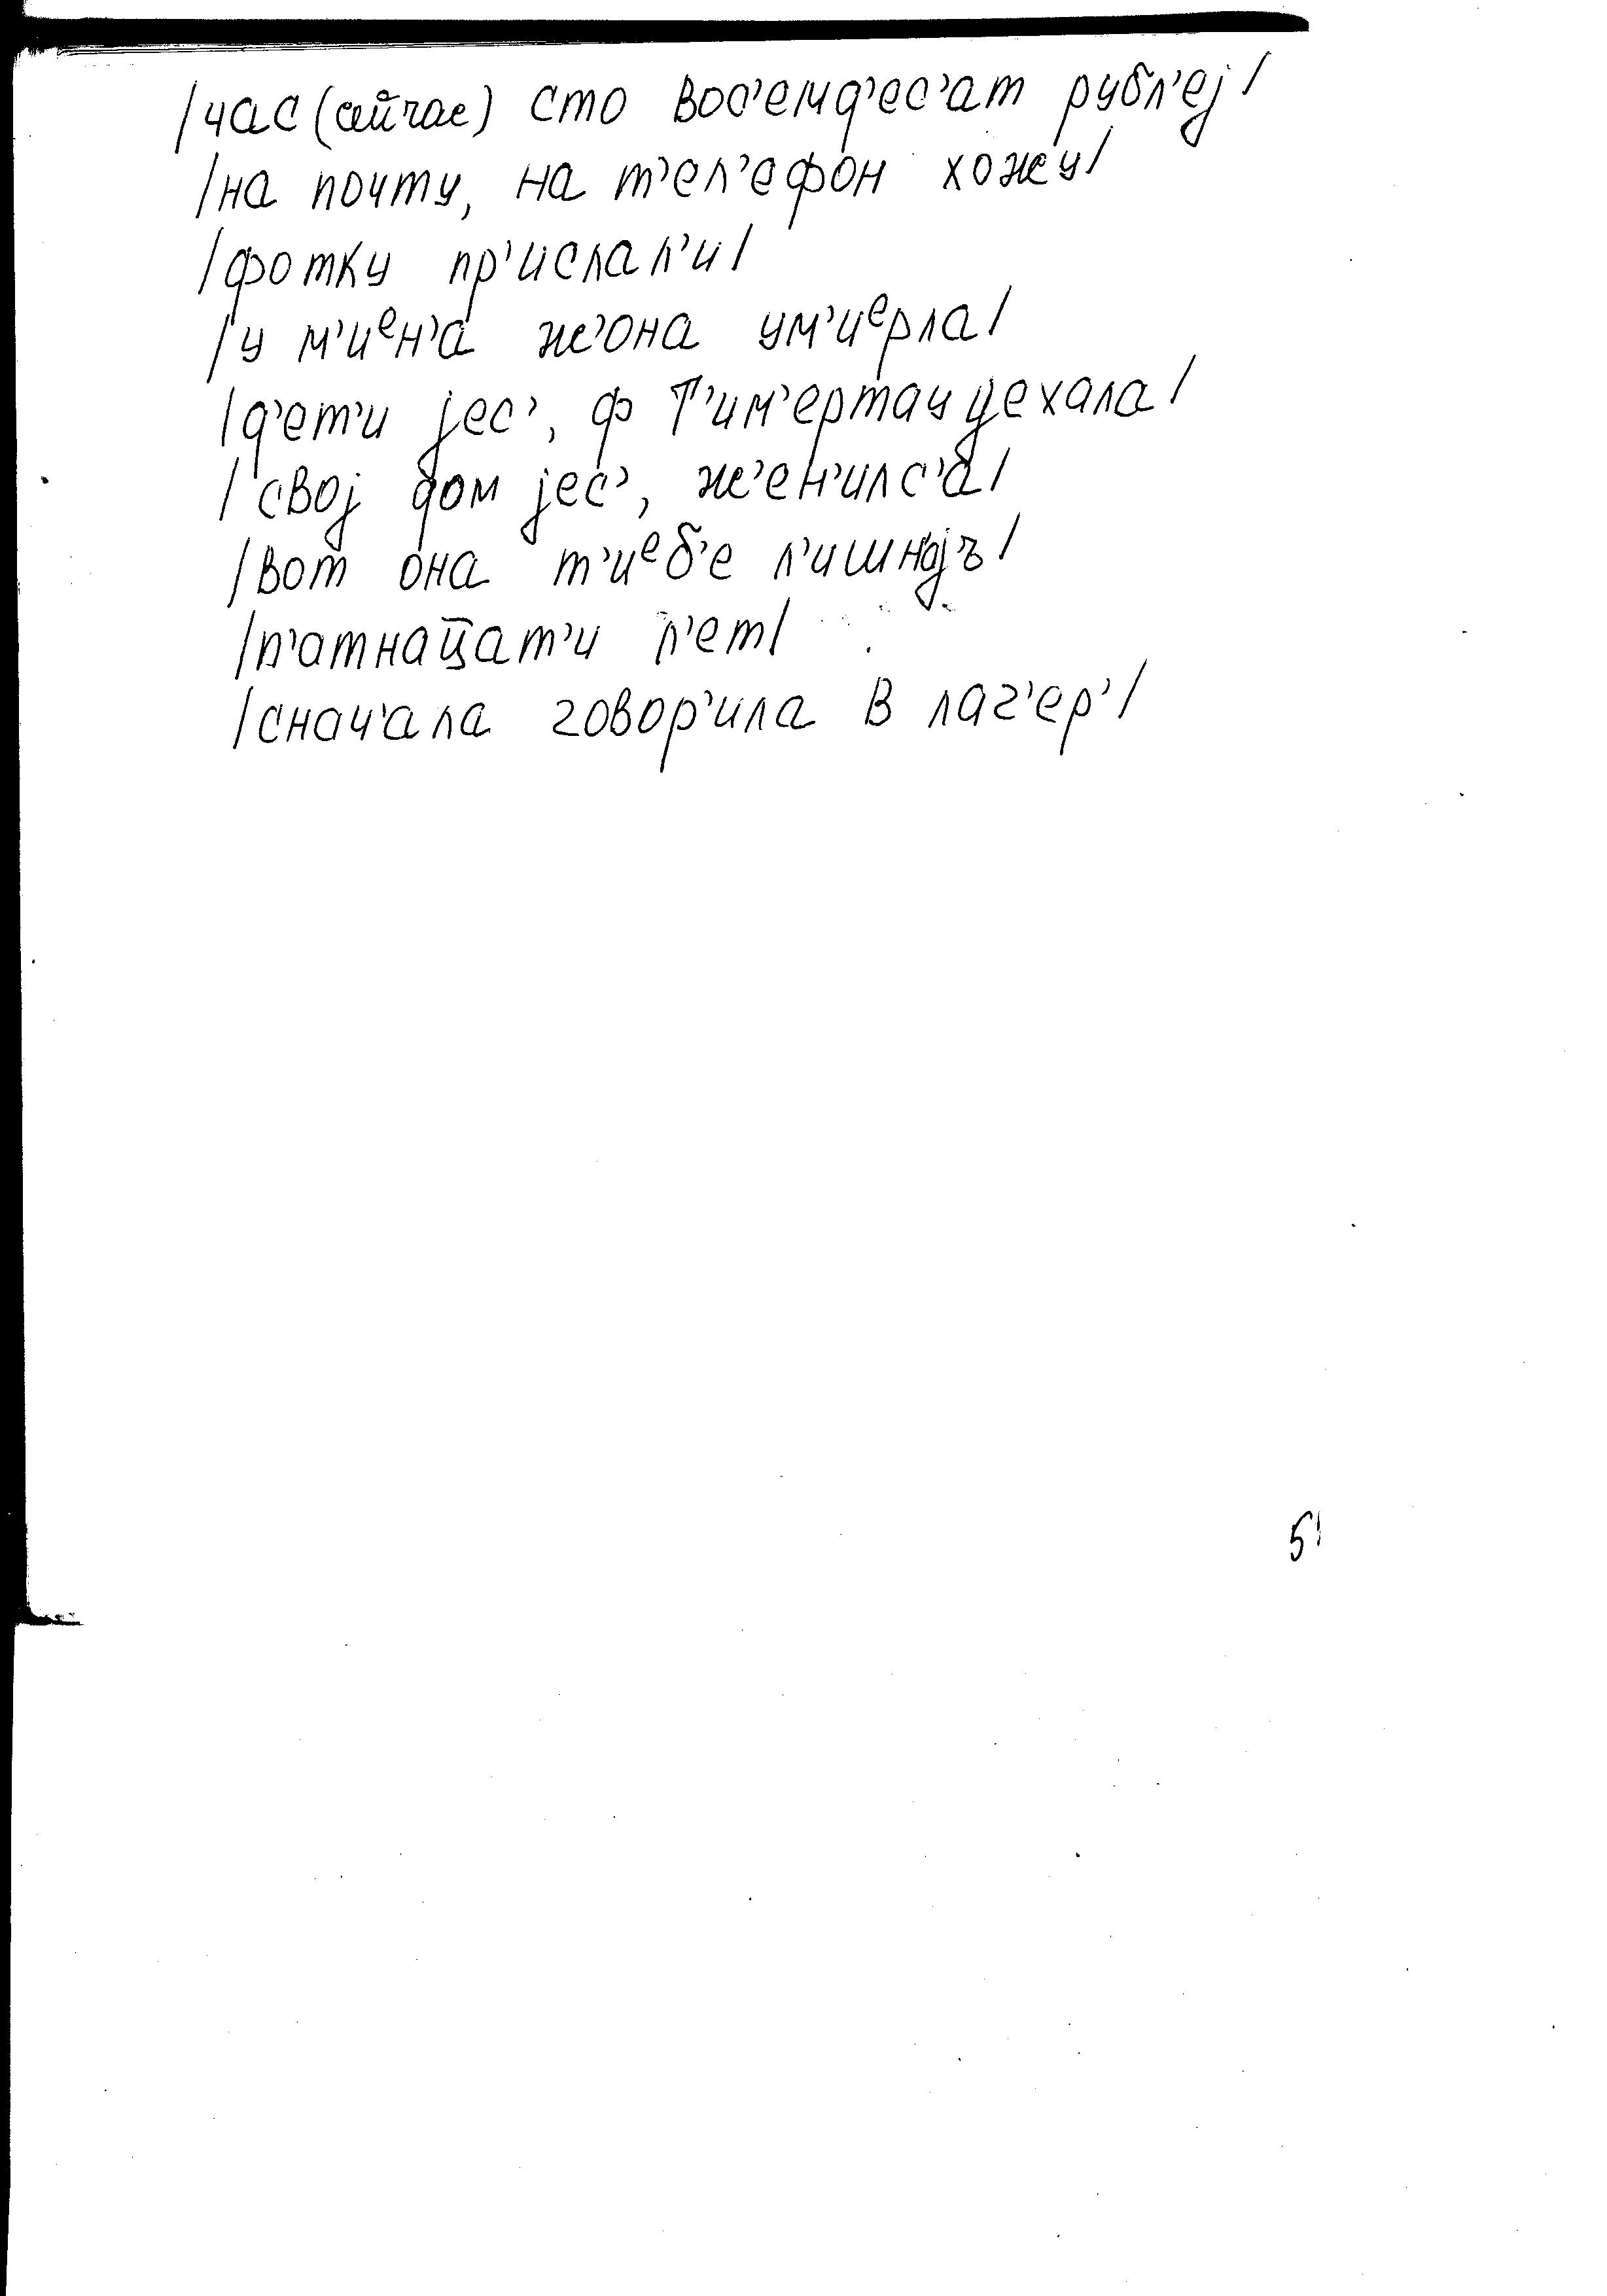 /час (сейчас) сто вос'емд'ес'ат рубл'еј/
/на почту, на т'ел'ефон хожу/
/фотку пр'ислал'и/
/у м'иᵉн'а ж'она ум'иᵉрла/
/д'ет'и јес', ф Т'им'ертау уехала/
/свој дом јес', ж'ен'илс'а/
/вот она т'иᵉб'е л'ишнојъ/
/п'атнац̄ат'и л'ет/
/снач'ала говор'ила в лаг'ер'/
5